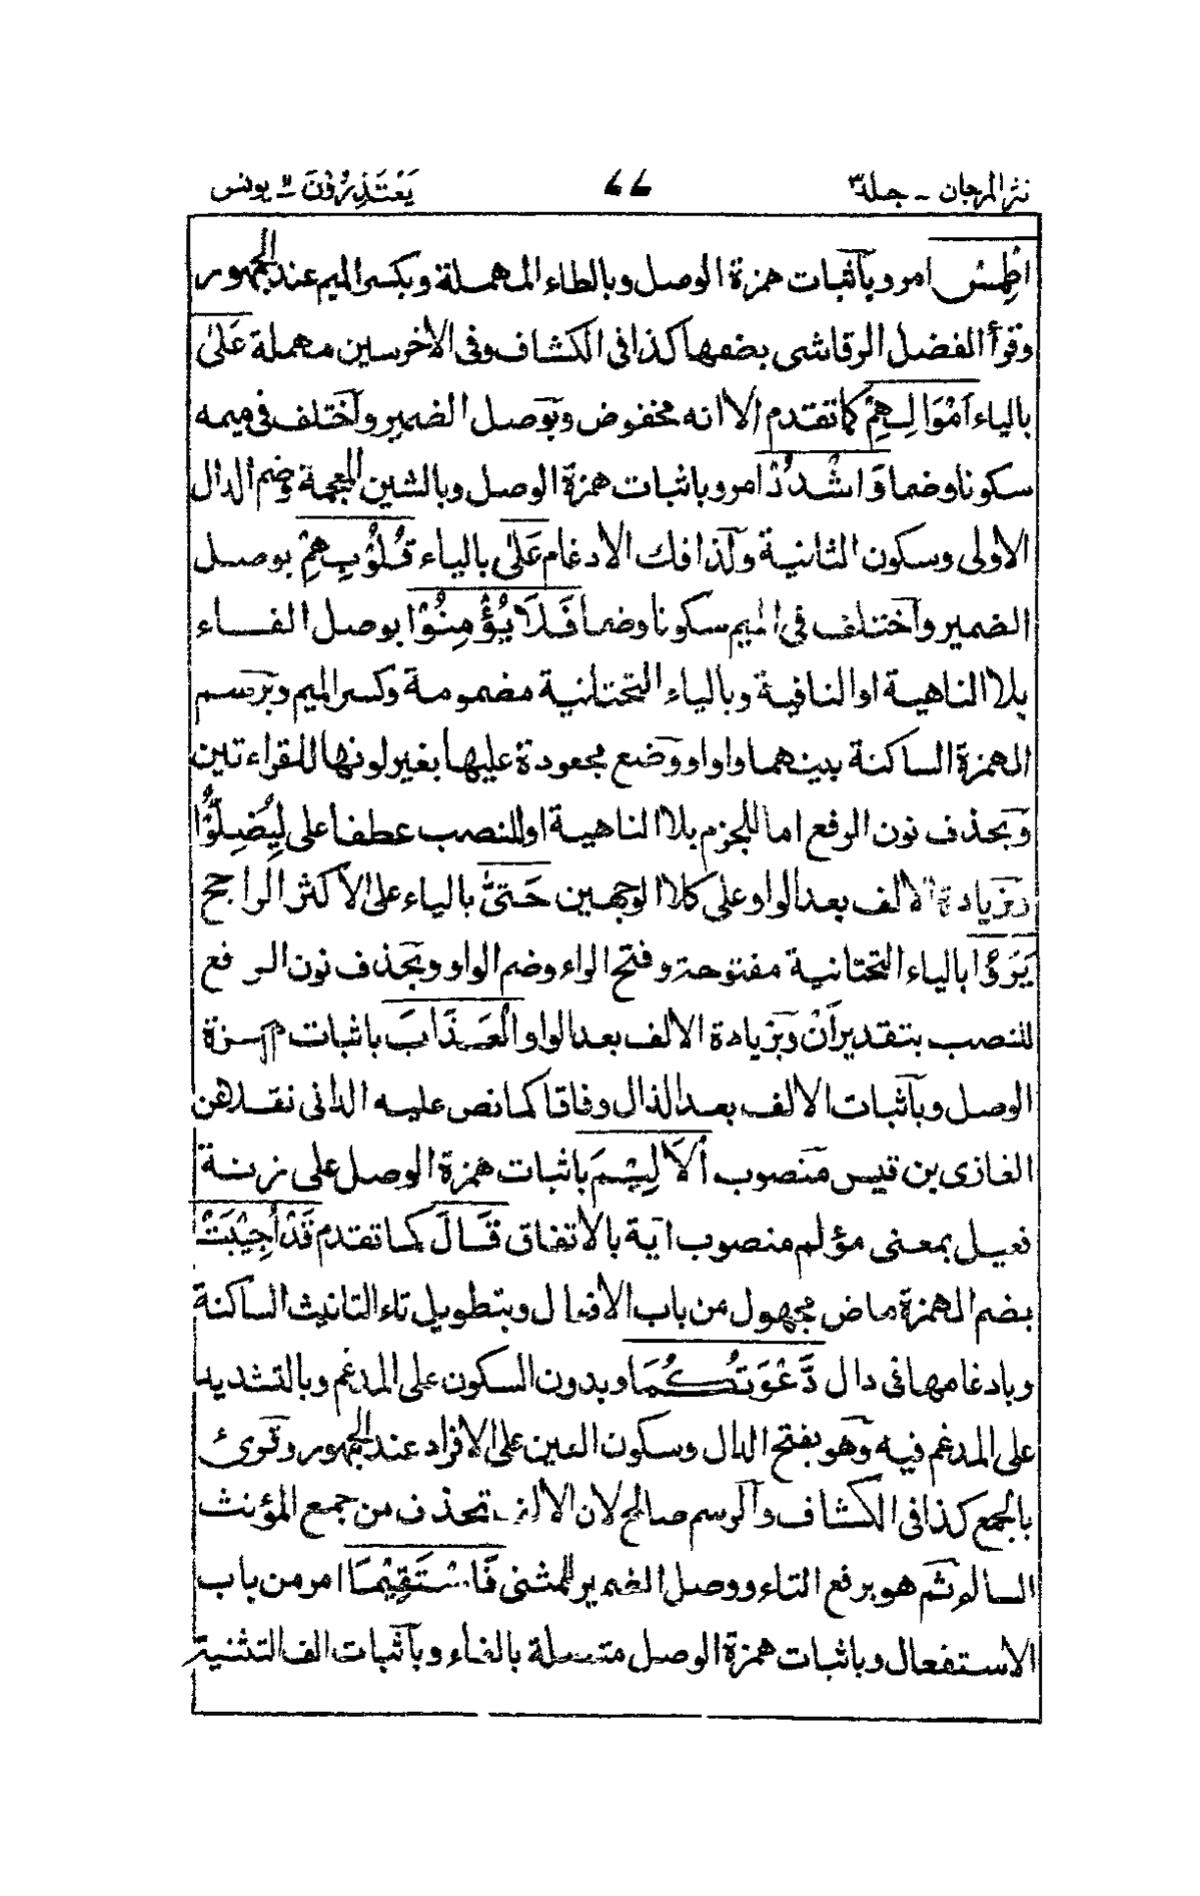 نثر المرجان - جلد ٣ ٦٦ يَعْتَذِرُوْنَ ١١ يونس
اطْمِسْ امر وبآثبات همزة الوصل وبالطاء المهملة وبكسر الميم عند الجمهور
وقرأ الفضل الرقاشى بضمها كذا فى الكشاف وفى الاخر سين مهملة عَلٰى
بالياء اَمْوَالِهِمْ كما تقدم الا انه مخفوض وبوصل الضمير وآختلف فى ميمه
سكونا وضما وَاشْدُدْ امر وباثبات همزة الوصل وبالشين المعجمة وضم الدال
الاولى وسكون الثانية ولذا فك الادغام عَلٰى بالياء قُلُوْبِهِمْ بوصل
الضمير وآختلف فى الميم سكونا وضما فَلَا يُؤْمِنُوْا بوصل الفاء
بلا الناهية او النافية وبالياء التحتانية مضمومة وكسر الميم وبرسم
الهمزة الساكنة بينهما واوا ووضع مجعودة عليها بغير لونها للقراءتين
وبحذف نون الرفع اما للجزم بلا الناهية او للنصب عطفا على لِيُضِلُّوْا
وبزيادة الالف بعد الواو على كلا الوجهين حَتّٰى بالياء على الاكثر الراجح
يَرَوُا بالياء التحتانية مفتوحة وفتح الراء وضم الواو وبحذف نون الرفع
للنصب بتقدير اَنْ وبزيادة الالف بعد الواو الْعَذَابَ باثبات همزة
الوصل وبآثبات الالف بعد الذال وفاقا كما نص عليه الدانى نقلا عن
الغازى بن قيس منصوب الْاَلِيْمَ باثبات همزة الوصل على زنة
فعيل بمعنى مؤلم منصوب اٰية بالاتفاق قَالَ كما تقدم قَدْ اُجِيْبَتْ
بضم الهمزة ماض مجهول من باب الافعال وبتطويل تاء التانيث الساكنة
وبادغامها فى دال دَّعْوَتُكُمَا وبدون السكون على المدغم وبالتشديد
على المدغم فيه وهو بفتح الدال وسكون العين على الافراد عند الجمهور وقرئ
بالجمع كذا فى الكشاف وآلرسم صالح لان الالف تحذف من جمع المؤنث
السالم ثم هو برفع التاء ووصل الضمير للمثنى فَاسْتَقِيْمَا امر من باب
الاستفعال وباثبات همزة الوصل متصلة بالفاء وبآثبات الف التثنية